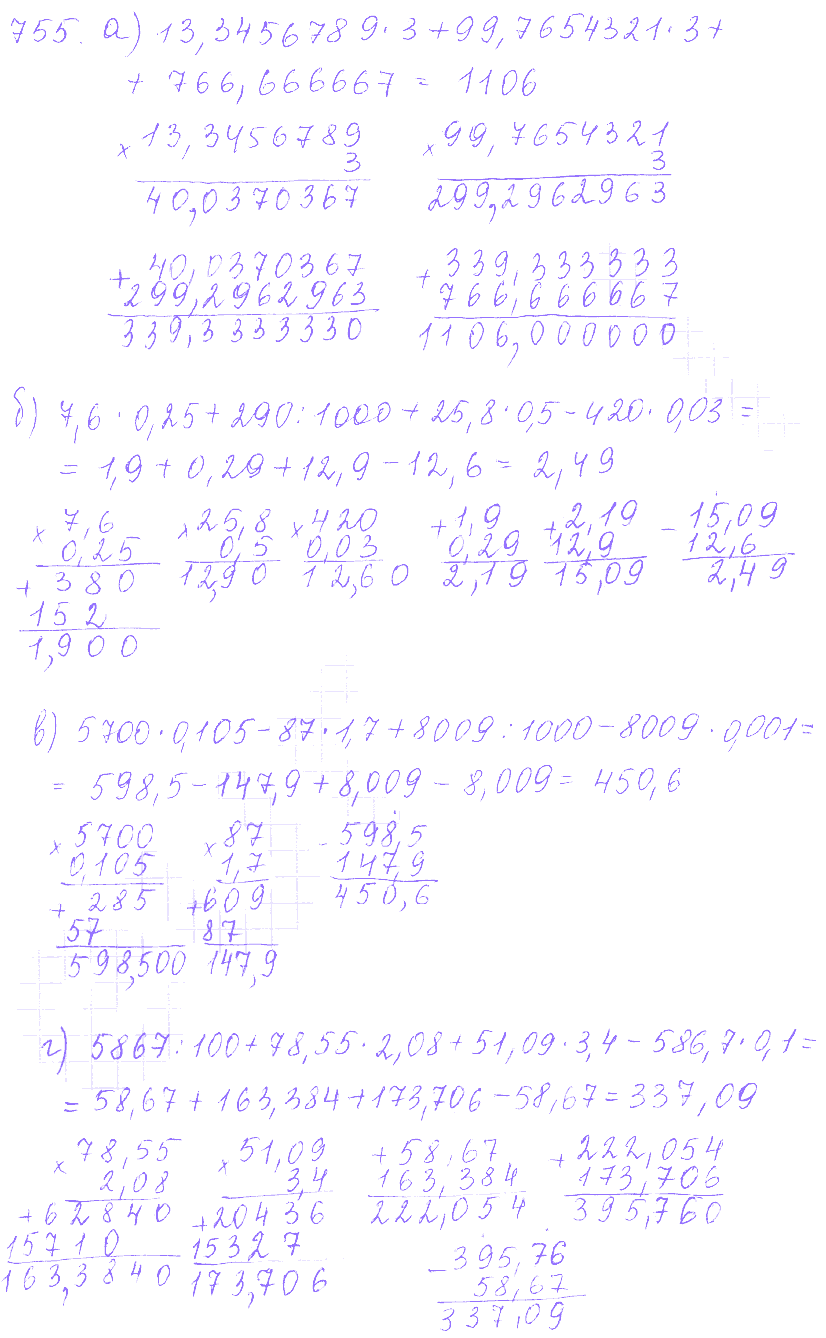 755. а) 13,3456789·3+99,7654321·3+
+ 766,666667 = 1106
× 13,3456789 × 99,7654321
3 3
40,0370367 299,2962963
+ 40,0370367 + 339,333333
299,2962963 766,666667
339,3333330 1106,000000
б) 7,6·0,25+290:1000+25,8·0,5-420·0,03=
= 1,9+0,29+12,9-12,6= 2,49
× 7,6 × 25,8 × 420 + 1,9 + 2,19 - 15,09
0,25 0,5 0,03 0,29 12,9 12,6
+ 380 12,90 12,60 2,19 15,09 2,49
152
1,900
в) 5700·0,105-87·1,7+8009:1000-8009·0,001=
= 598,5-147,9+8,009-8,009= 450,6
× 5700 × 87 - 598,5
0,105 1,7 147,9
+ 285 + 609 450,6
57 87
598,500 147,9
г) 5867:100+78,55·2,08+51,09·3,4-586,7·0,1=
= 58,67+163,384+173,706-58,67=337,09
× 78,55 × 51,09 + 58,67 + 222,054
2,08 3,4 163,384 173,706
+ 62840 + 20436 222,054 395,760
15710 15327
163,3840 173,706
- 395,76
58,67
337,09